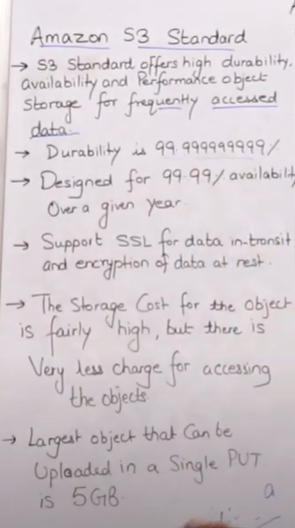 Amazon S3 Standard
→ S3 Standard offers high durability,
availability and Performance object
Storage for frequently accessed
data.
→ Durability is 99.999999999/
→ Designed for 99.99/ availabilit
Over a given year.
→ Support SSL for data in-transit
and encryption of data at rest.
→ The Storage Cost for the object
is fairly high, but there is
Very less charge for accessing
the objects
→ Largest object that Can be
Uploaded in a Single PUT
is 5GB.
a